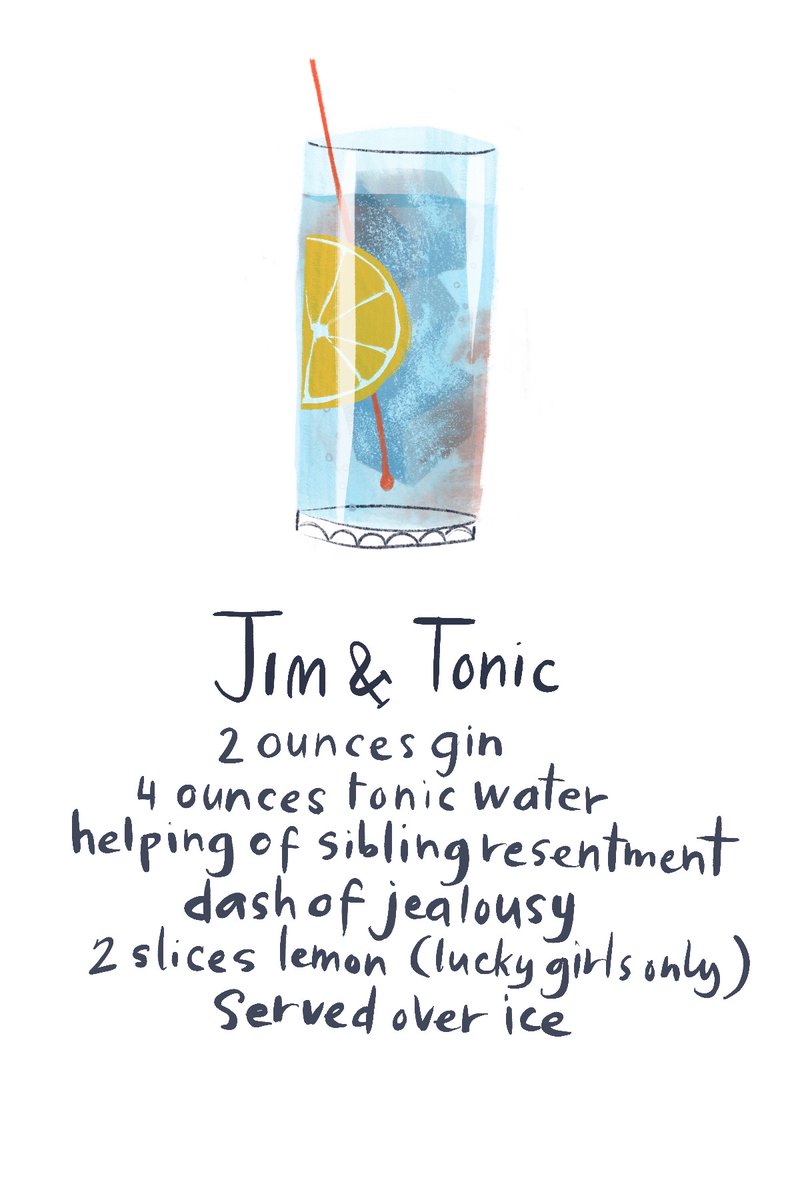 Jim & Tonic
2 ounces gin
4 ounces tonic water
helping of sibling resentment
dash of jealousy
2 slices lemon (lucky girls only)
Served over ice